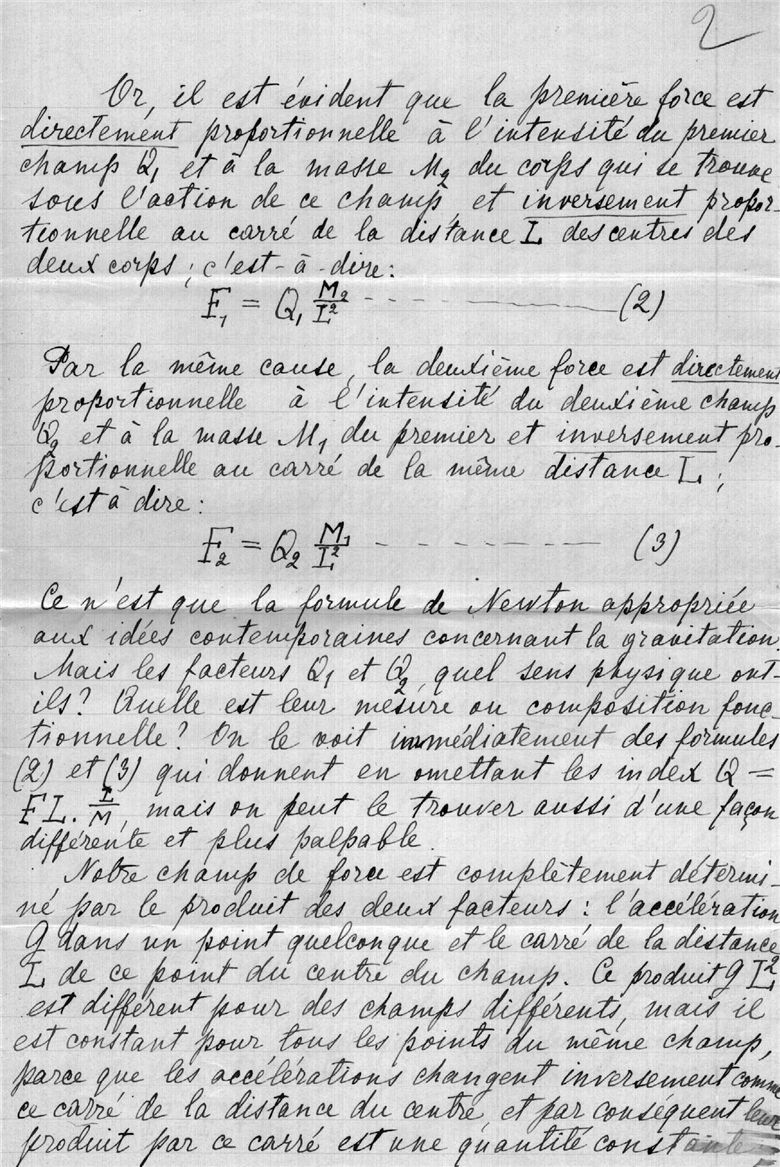 2
Or, il est évident que la première force est
directement proportionnelle à l'intensité du premier
champ Q₁ et à la masse M₂ du corps qui se trouve
sous l'action de ce champ, et inversement propor-
tionnelle au carré de la distance L des centres des
deux corps ; c'est-à-dire:
F₁ = Q₁ M₂/L² - - - - - - - - - (2)
Par la même cause, la deuxième force est directement
proportionnelle à l'intensité du deuxième champ
Q₂ et à la masse M₁ du premier et inversement pro-
portionnelle au carré de la même distance L ;
c'est à dire:
F₂ = Q₂ M₁/L² - - - - - - - - - (3)
Ce n'est que la formule de Newton appropriée
aux idées contemporaines concernant la gravitation.
Mais les facteurs Q₁ et Q₂, quel sens physique ont-
ils? Quelle est leur mesure ou composition fonc-
tionnelle? On le voit immédiatement des formules
(2) et (3) qui donnent en omettant les index Q =
FL. L/M, mais on peut le trouver aussi d'une façon
différente et plus palpable.
Notre champ de force est complètement détermi-
né par le produit des deux facteurs : l'accélération
g dans un point quelconque et le carré de la distance
L de ce point du centre du champ. Ce produit g L²
est différent pour des champs différents, mais il
est constant pour tous les points du même champ,
parce que les accélérations changent inversement comme
ce carré de la distance du centre, et par conséquent leur
produit par ce carré est une quantité constante